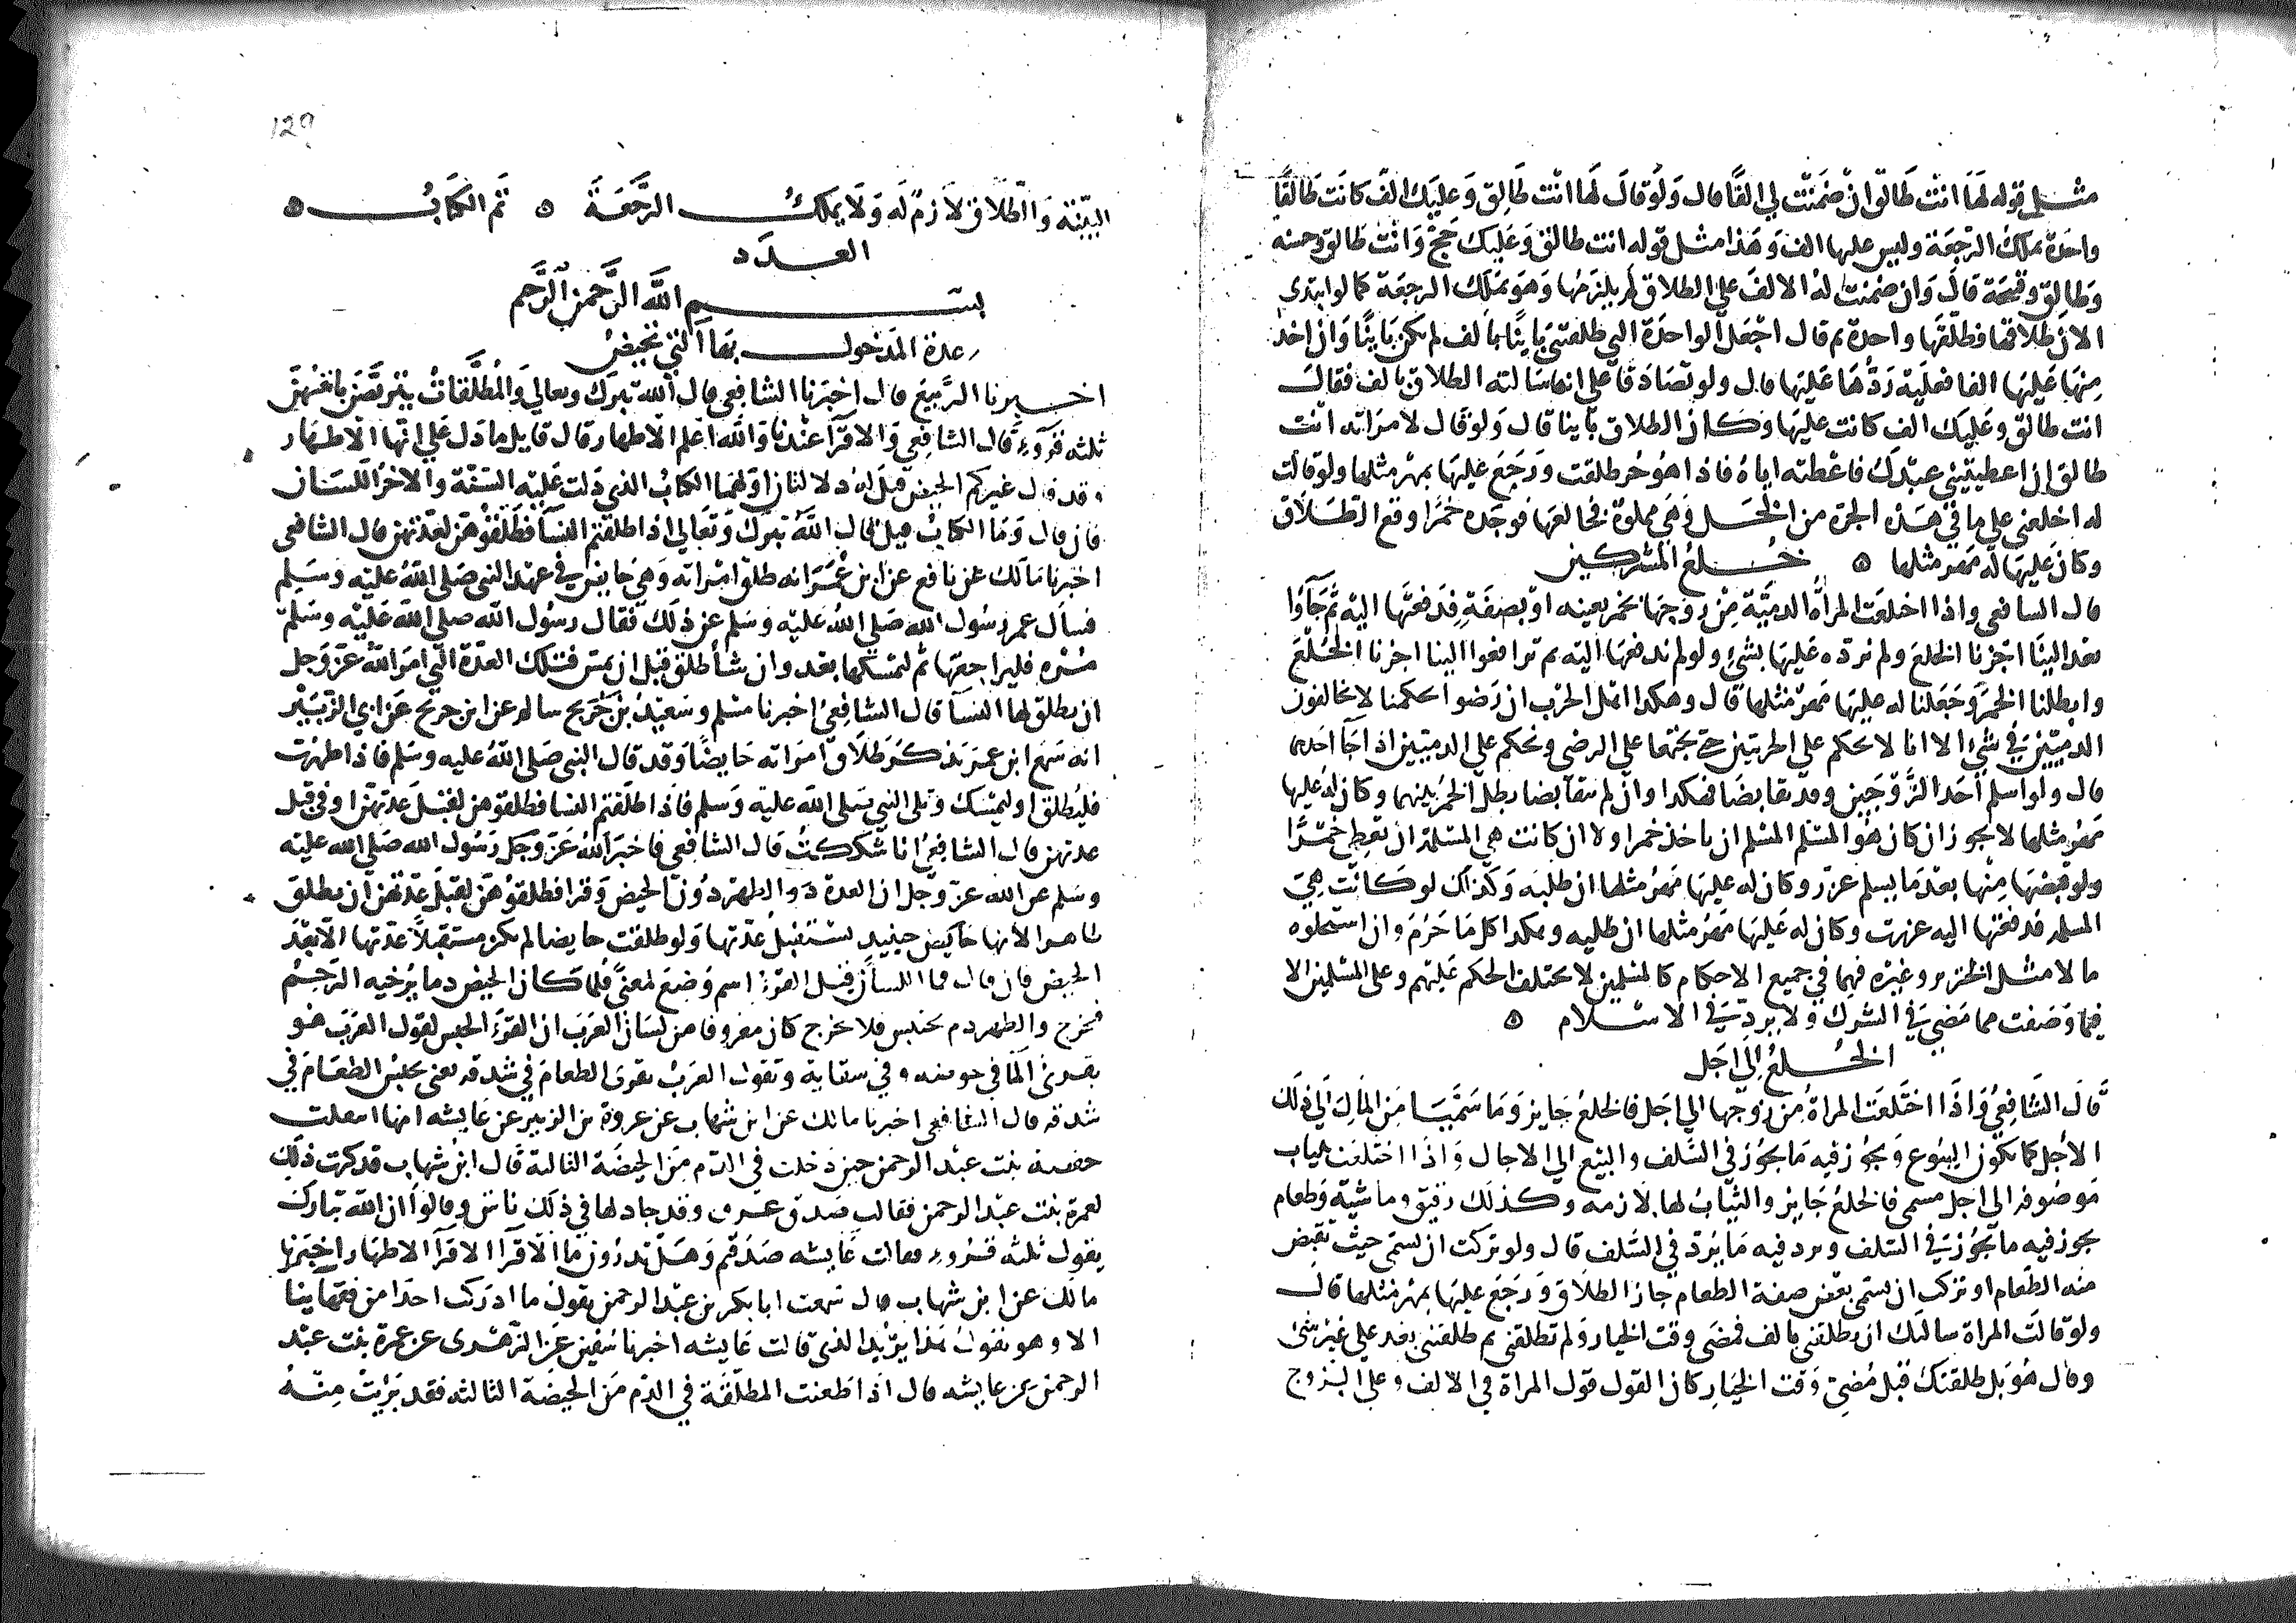 مثل قوله لها انت طالق ان ضمنت لي الفا قال ولو قال لها انت طالق وعليك الف كانت طالقا
واحدة يملك الرجعة وليس عليها الف وهذا مثل قوله انت طالق وعليك حج وانت طالق وحسنه
وطالق وقبيحة قال وان ضمنت له الالف على الطلاق لم يلزمها وهو يملك الرجعة كما لو ابتدى
الان طلاقها فطلقها واحدة ثم قال اجعل الواحدة التي طلقتني باينا بالف لم تكن باينا وان اخذ
منها عليها الفا فعليه ردها عليها قال ولو تصادقا على انها سالته الطلاق بالف فقال
انت طالق وعليك الف كانت عليها وكان الطلاق باينا قال ولو قال لامراته انت
طالق ان اعطيتيني عبدك فاعطته اياه فاذا هو حر طلقت ورجع عليها بمهر مثلها ولو قالت
له اخلعني على ما في هذه الجرة من الخل وهي مملوة فخالعها فوجده خمرا وقع الطلاق
وكان عليها له مهر مثلها ه خلع المشركين
قال الشافعي واذا اختلعت المراة الذمية من زوجها بخمر بعينه او بصفة فدفعتها اليه ثم جاوا
بعد الينا اجزنا الخلع ولم نرده عليها بشي ولو لم تدفعها اليه ثم ترافعوا الينا اجزنا الخلع
وابطلنا الخمر وجعلنا له عليها مهر مثلها قال وهكذا اهل الحرب ان رضوا بحكمنا لا يخالفون
الذميين في شي الا انا لا نحكم على الحربيين حتى يجتمعا على الرضى ونحكم على الذميين اذا جا احدهما
قال ولو اسلم احد الزوجين وقد تقابضا فهكذا وان لم يتقابضا بطل الخمر بينهما وكان له عليها
مهر مثلها لا يجوز ان كان هو المسلم المسلم ان ياخذ خمرا ولا ان كانت هي المسلمة ان تعطي خمرا
ولو قبضها منها بعد ما يسلم عزر وكان له عليها مهر مثلها ان طلبه وكذلك لو كانت هي
المسلمة فدفعتها اليه عزرت وكان له عليها مهر مثلها ان طلبه وهكذا كل ما حرم وان استحلوه
مالا مثل الخنزير وغيره فهما في جميع الاحكام كالمسلمين لا يختلف الحكم عليهم وعلى المسلمين الا
فيما وصفت مما مضى في الشرك ولا يرد في الاسلام ه
الخلع الى اجل
قال الشافعي واذا اختلعت المراة من زوجها الى اجل فالخلع جايز وما سميا من المال الى ذلك
الاجل كما يكون البيوع ويجوز فيه ما يجوز في السلف والبيع الى الاجال واذا اختلعت بثياب
موصوفه الى اجل مسمى فالخلع جايز والثياب لها لازمه وكذلك رقيق وماشية وطعام
يجوز فيه ما يجوز في السلف ويرد فيه ما يرد في السلف قال ولو تركت ان تسمى حيث تقبض
منه الطعام او تركت ان تسمى بعض صفة الطعام جاز الطلاق ورجع عليها بمهر مثلها قال
ولو قالت المراة سالتك ان تطلقني بالف فمضى وقت الخيار ولم تطلقني ثم طلقتني بعد على غير شي
وقال هو بل طلقتك قبل مضي وقت الخيار كان القول قول المراة في الالف وعلى الزوج
129
البينة والطلاق لازم له ولا يملك الرجعة ه تم الكتاب ه
العدد
بسم الله الرحمن الرحيم
عدة المدخول بها التي تحيض
اخبرنا الربيع قال اخبرنا الشافعي قال الله تبرك وتعالى والمطلقات يتربصن بانفسهن
ثلثه قروء قال الشافعي والاقرا عندنا والله اعلم الاطهار قال قايل ما دل على انها الاطهار
وقد قال غيركم الحيض قيل له دلالتان اولهما الكتاب الذي دلت عليه السنة والاخر اللسان
فان قال وما الكتاب قيل قال الله تبرك وتعالى اذا طلقتم النسا فطلقوهن لعدتهن قال الشافعي
اخبرنا مالك عن نافع عن ابن عمر انه طلق امراته وهي حايض في عهد النبي صلى الله عليه وسلم
فسال عمر رسول الله صلى الله عليه وسلم عن ذلك فقال رسول الله صلى الله عليه وسلم
مره فليراجعها ثم ليمسكها بعد وان شا طلق قبل ان يمس فتلك العدة التي امر الله عز وجل
ان يطلق لها النسا قال الشافعي اخبرنا مسلم وسعيد بن سالم عن ابن جريج عن ابي الزبير
انه سمع ابن عمر يذكر طلاق امراته حايضا وقد قال النبي صلى الله عليه وسلم فاذا طهرت
فليطلق او ليمسك وتلى النبي صلى الله عليه وسلم فاذا طلقتم النسا فطلقوهن لقبل عدتهن او في قبل
عدتهن قال الشافعي انا شككت قال الشافعي فاخبر الله عز وجل رسول الله صلى الله عليه
وسلم عن الله عز وجل ان العدة الطهر دون الحيض وقرا فطلقوهن لقبل عدتهن ان يطلق
طاهرا لانها حينيذ تستقبل عدتها ولو طلقت حايضا لم تكن مستقبلة عدتها الا بعد
الحيض فان قال فما اللسان قيل القرء اسم وضع لمعنى فلما كان الحيض دما يرخيه الرحم
فخرج والطهر دم يحتبس فلا يخرج كان معروفا من لسان العرب ان القرء الحبس لقول العرب هو
يقري الما في حوضه وفي سقاية وتقول العرب يقرى الطعام في شدقه يعني يحبس الطعام في
شدقه قال الشافعي اخبرنا مالك عن ابن شهاب عن عروة بن الزبير عن عايشه انها انتقلت
حفصة بنت عبد الرحمن حين دخلت في الدم من الحيضة الثالثة قال ابن شهاب فذكرت ذلك
لعمرة بنت عبد الرحمن فقالت صدق عروة وقد جادلها في ذلك ناس وقالوا ان الله تبارك
يقول ثلثه قروء فقالت عايشه صدقتم وهل تدرون ما الاقرا الاقرا الاطهار اخبرنا
مالك عن ابن شهاب قال سمعت ابا بكر بن عبد الرحمن يقول ما ادركت احدا من فقهاينا
الا وهو يقول هذا يريد الذي قالت عايشه اخبرنا سفين عن الزهري عن عمرة بنت عبد
الرحمن عن عايشه قال اذا طعنت المطلقة في الدم من الحيضة الثالثه فقد بريت منه